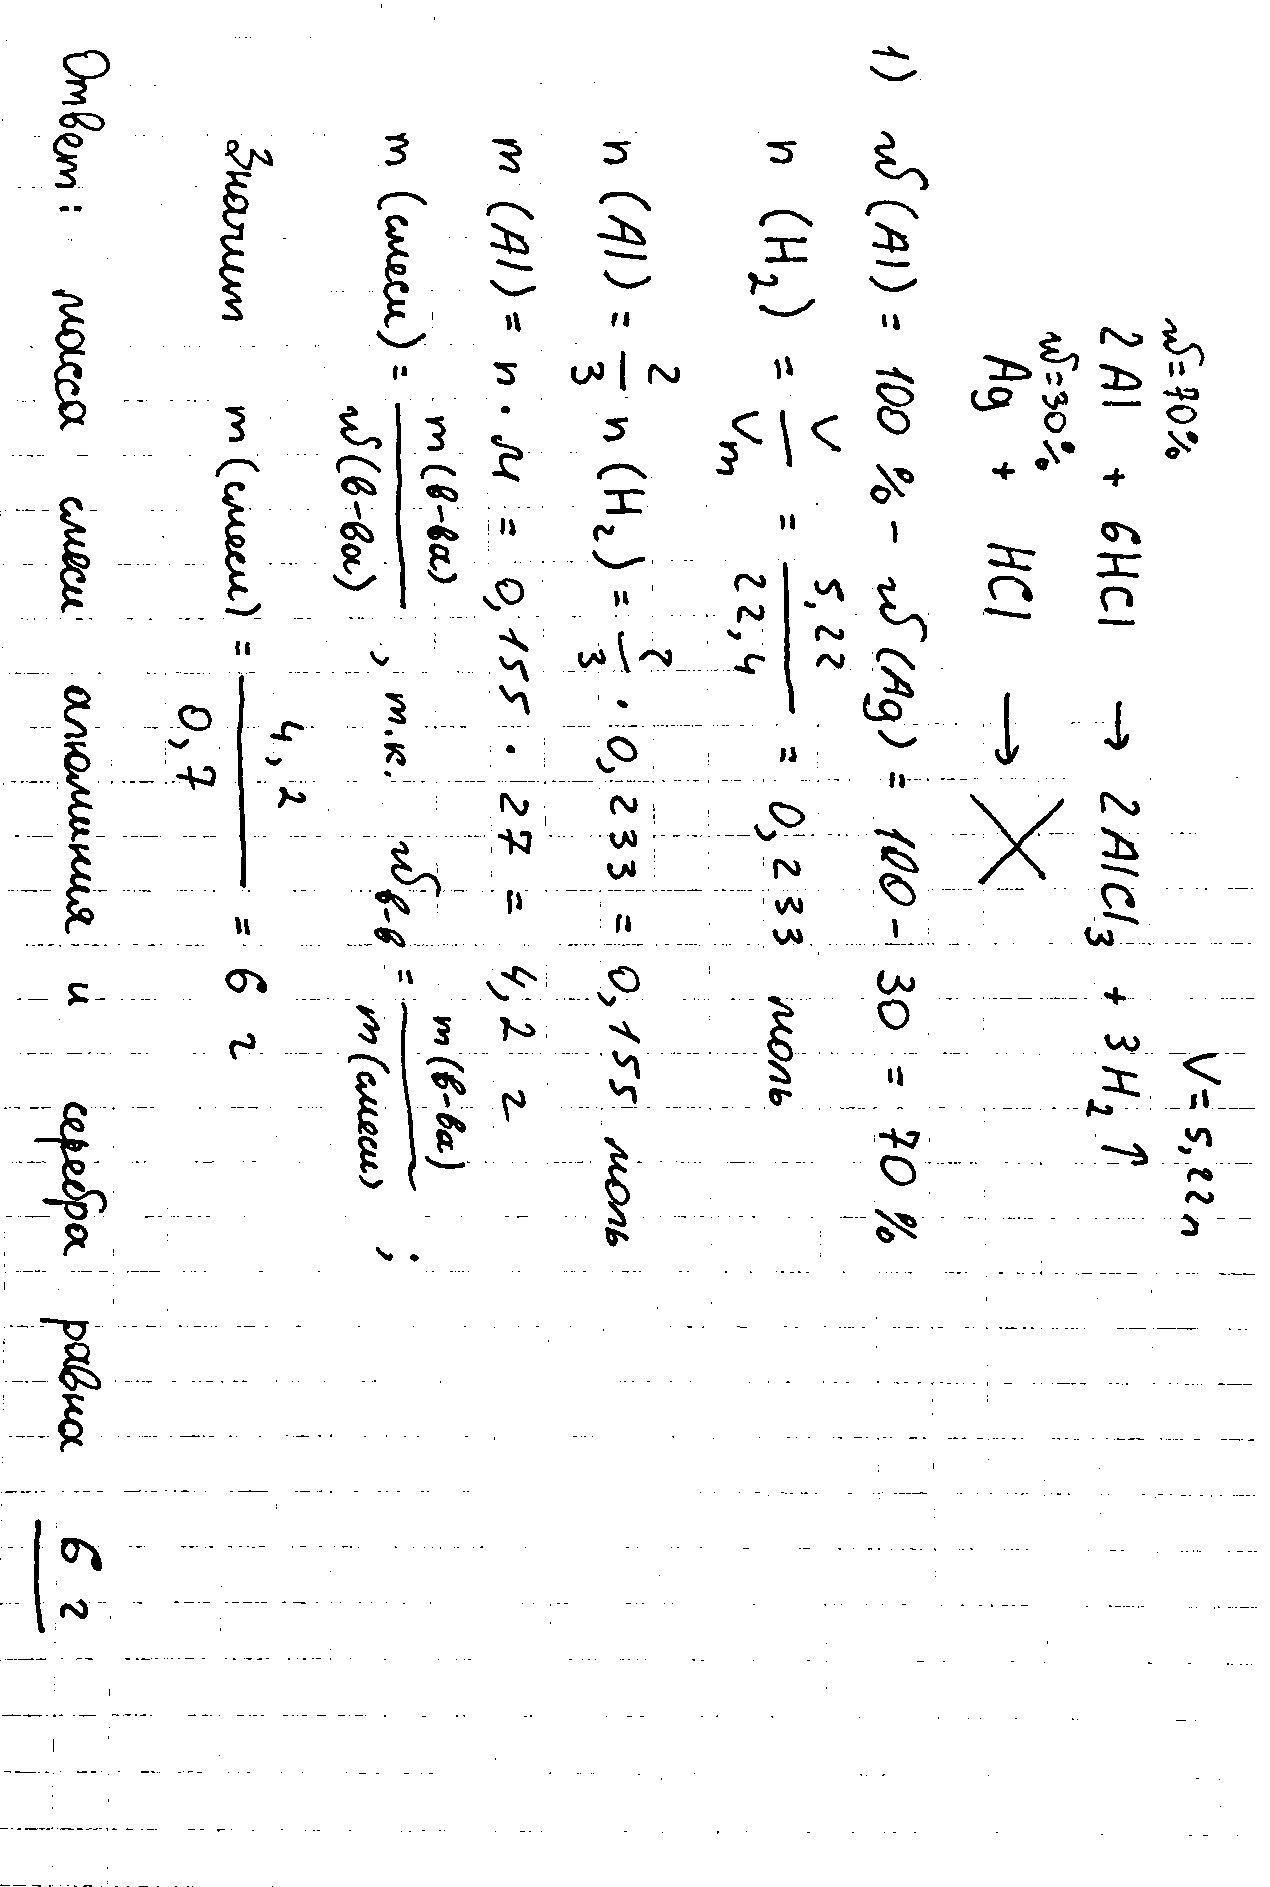 w=70% V=5,22л
2Al + 6HCl → 2AlCl₃ + 3H₂↑
w=30%
Ag + HCl → X
1) w(Al) = 100 % - w(Ag) = 100 - 30 = 70 %
n (H₂) = V/Vm = 5,22/22,4 = 0,233 моль
n (Al) = 2/3 n (H₂) = 2/3 · 0,233 = 0,155 моль
m (Al) = n · M = 0,155 · 27 = 4,2 г
m (смеси) = m(в-ва)/w(в-ва) , т.к. w в-в = m(в-ва)/m(смеси) ;
Значит m(смеси) = 4,2/0,7 = 6 г
Ответ: масса смеси алюминия и серебра равна 6 г